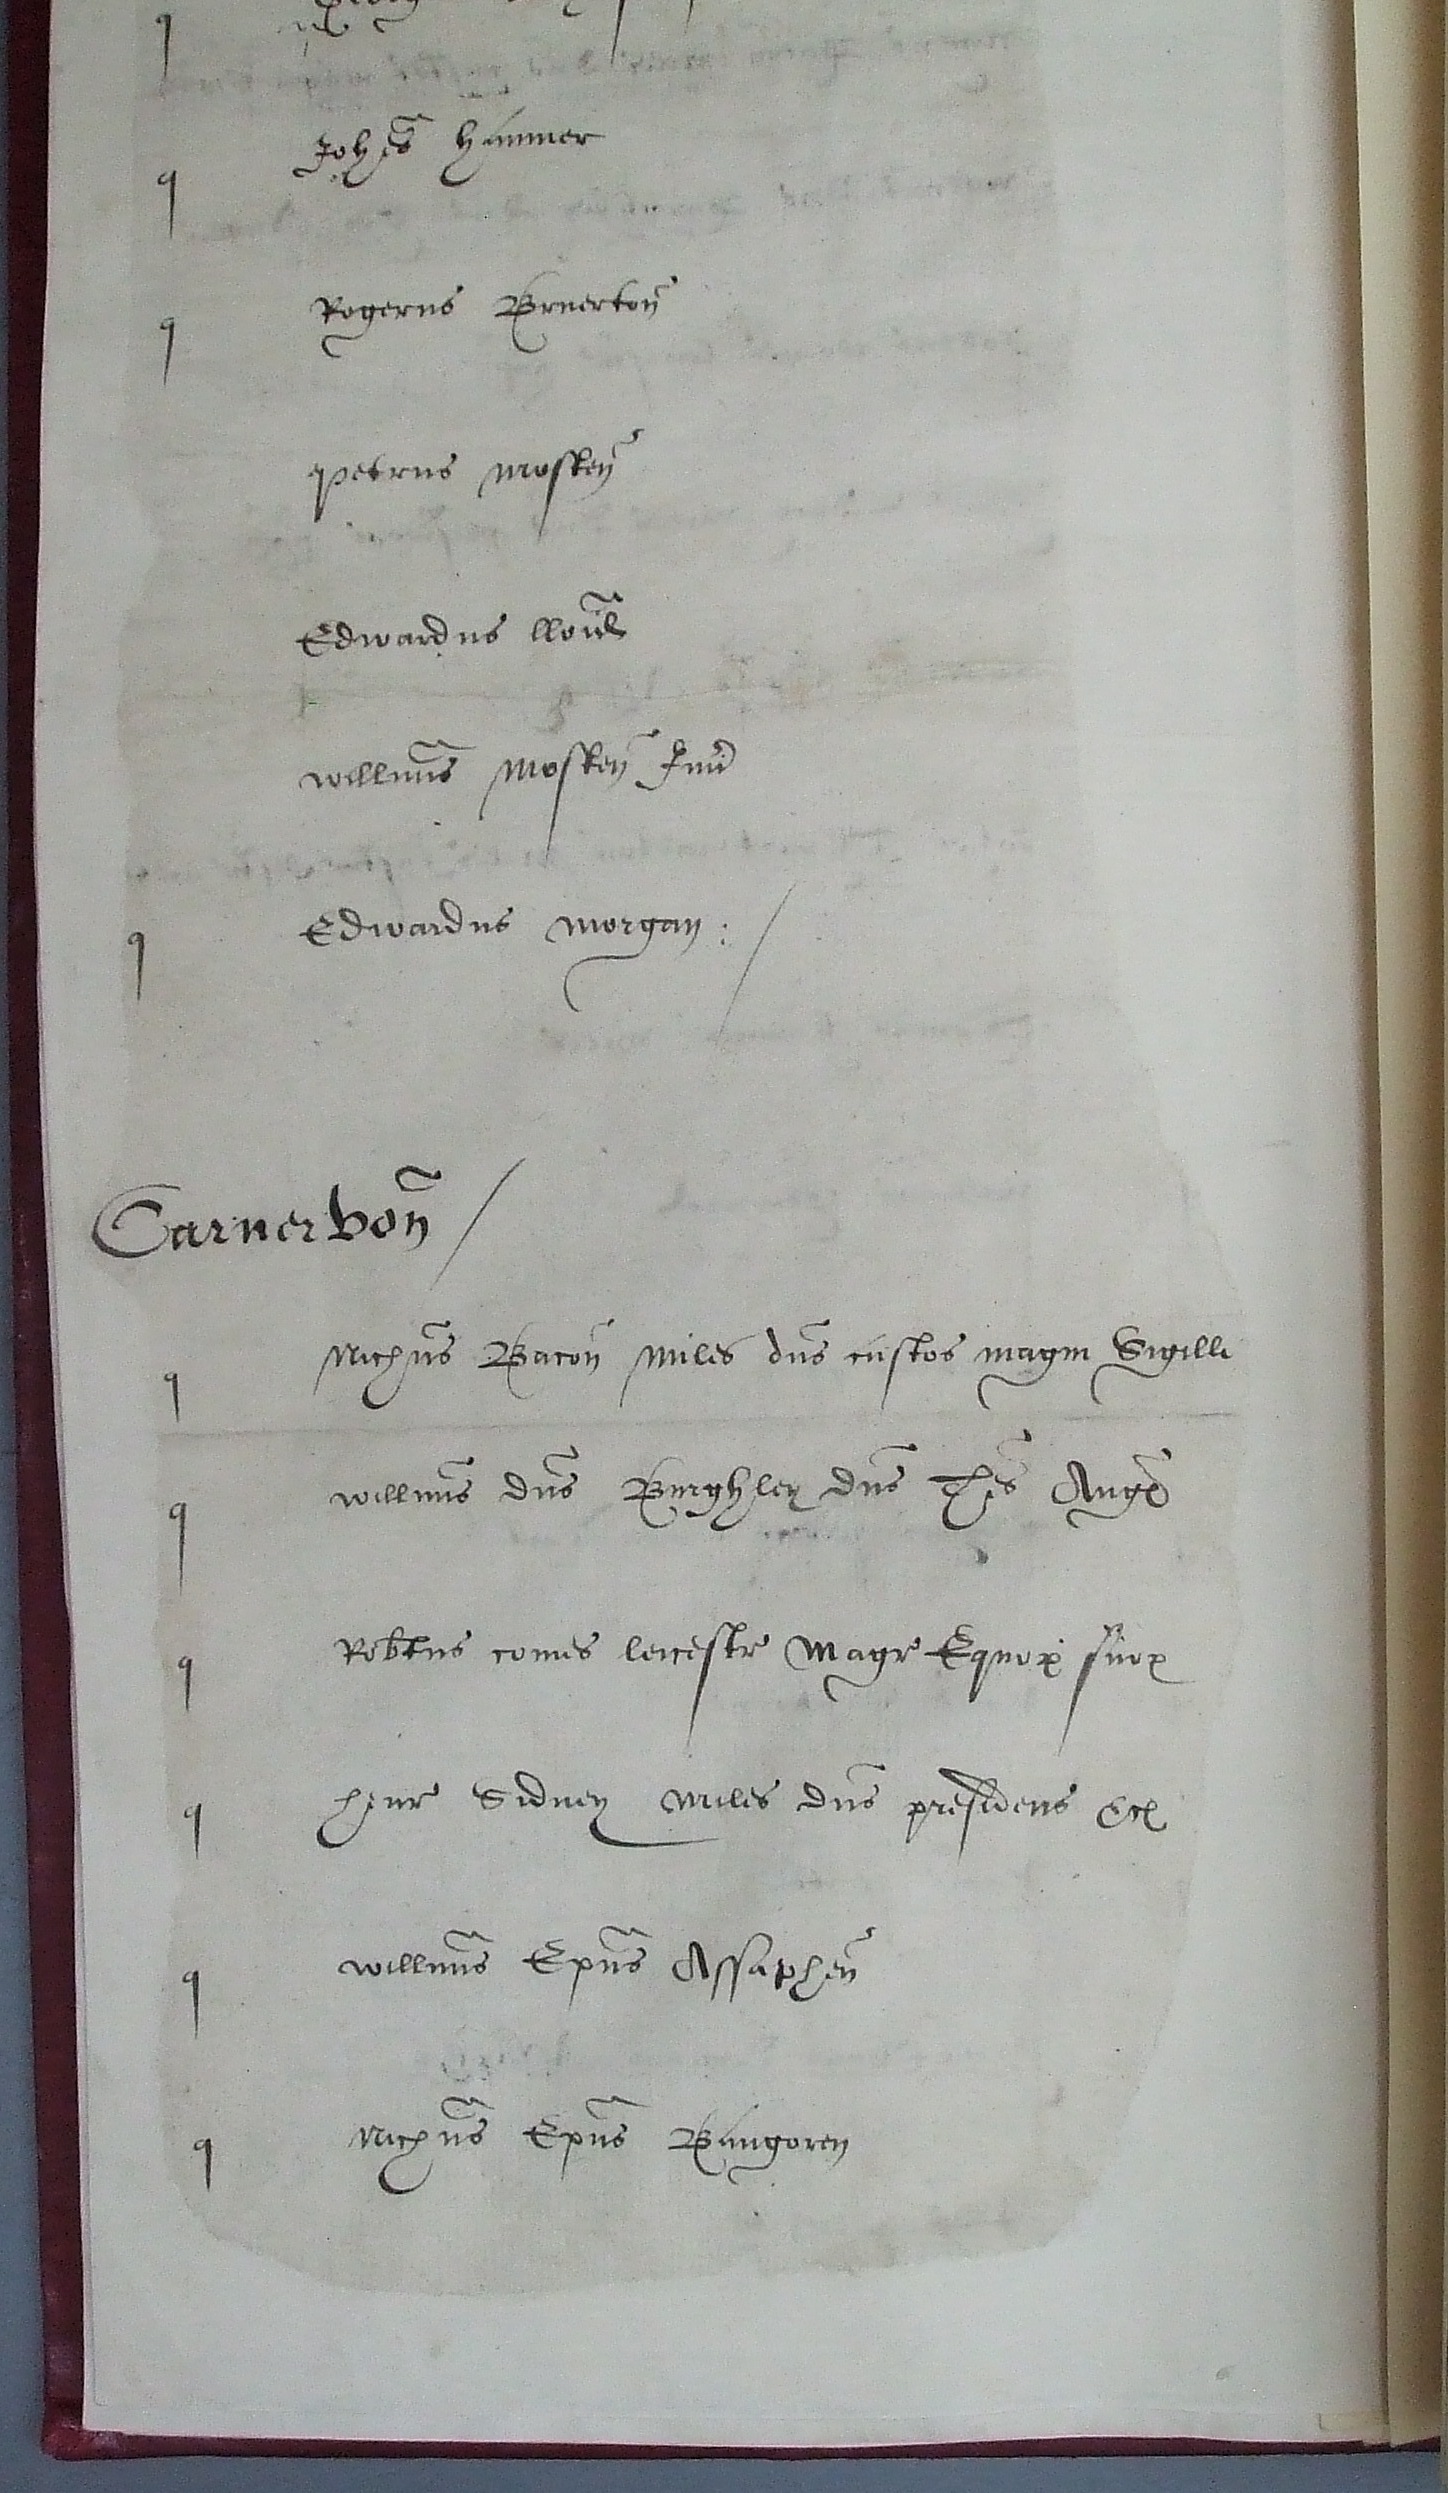 q
q Joh̃es Hanmer
q Rogerus Brerton̄
Petrus Mosten̄
Edwardus lloid̃
Willm̃us Mosten̄ Juñ
q Edwardus Morgan : /
Carnervon̄ /
q Nich̃us Bacon̄ miles dn̄s custos magni Sigilli
q Willm̃us dn̄s Burghley dn̄s Thes̄ Angł
q Rob̃tus comes leicestr Magr Equoꝝ suoꝝ
q Henr Sidney miles dn̄s presidens &c
q Willm̃us Ep̄us Assaphen̄
q Nich̃us Ep̄us Bangoren